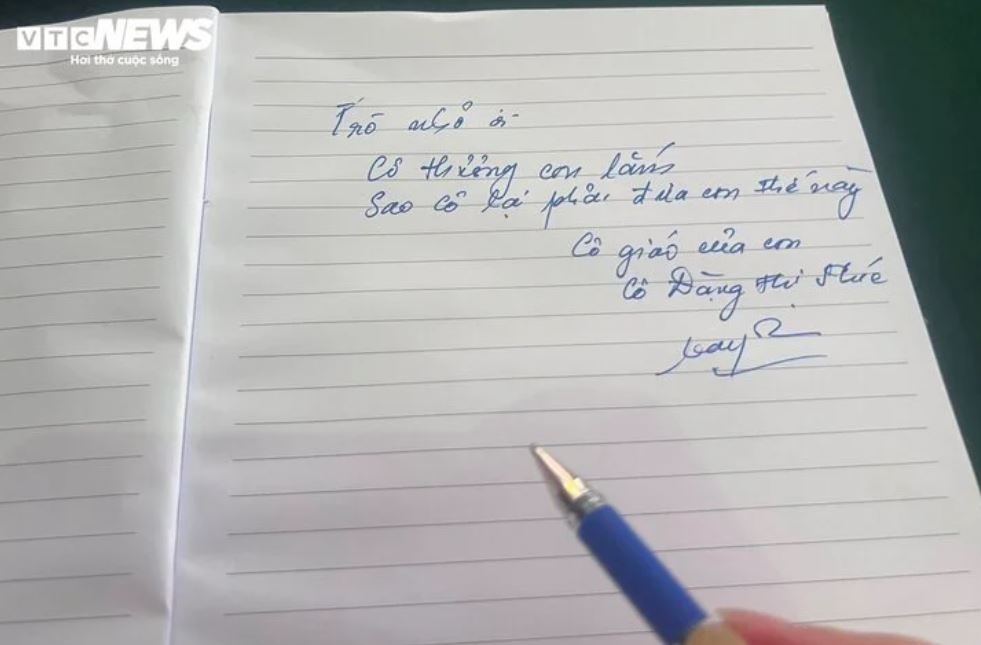 VTC NEWS
Hơi thở cuộc sống
Trò nhỏ ơi
Cô thương con lắm
Sao cô lại phải đưa con thế này
Cô giáo của con
Cô Đặng thị